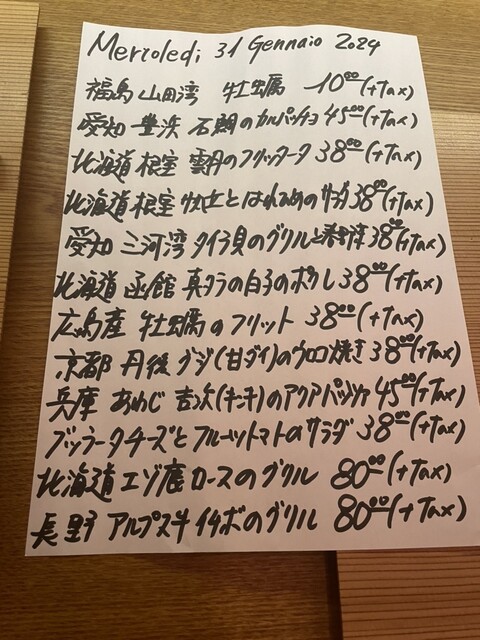 Mercoledi 31 Gennaio 2024
福島 山田湾 牡蛎 10⁰⁰(+Tax)
愛知 豊浜 石鯛のカルパッチョ 45⁰⁰(+Tax)
北海道 根室 雲丹のフリッタータ 38⁰⁰(+Tax)
北海道 根室 帆立とはれひめのサラダ 38⁰⁰(+Tax)
愛知 三河湾 タイラ貝のグリルと 38⁰⁰(+Tax)
北海道 函館 真タラの白子のポワレ 38⁰⁰(+Tax)
広島産 牡蛎のフリット 38⁰⁰(+Tax)
京都 丹後 グジ(甘ダイ)のウロコ焼き 38⁰⁰(+Tax)
兵庫 あわじ 吉次(キンキ)のアクアパッツァ 45⁰⁰(+Tax)
ブッラータチーズとフルーツトマトのサラダ 38⁰⁰(+Tax)
北海道 エゾ鹿ロースのグリル 80⁰⁰(+Tax)
長野 アルプス牛 イチボのグリル 80⁰⁰(+Tax)